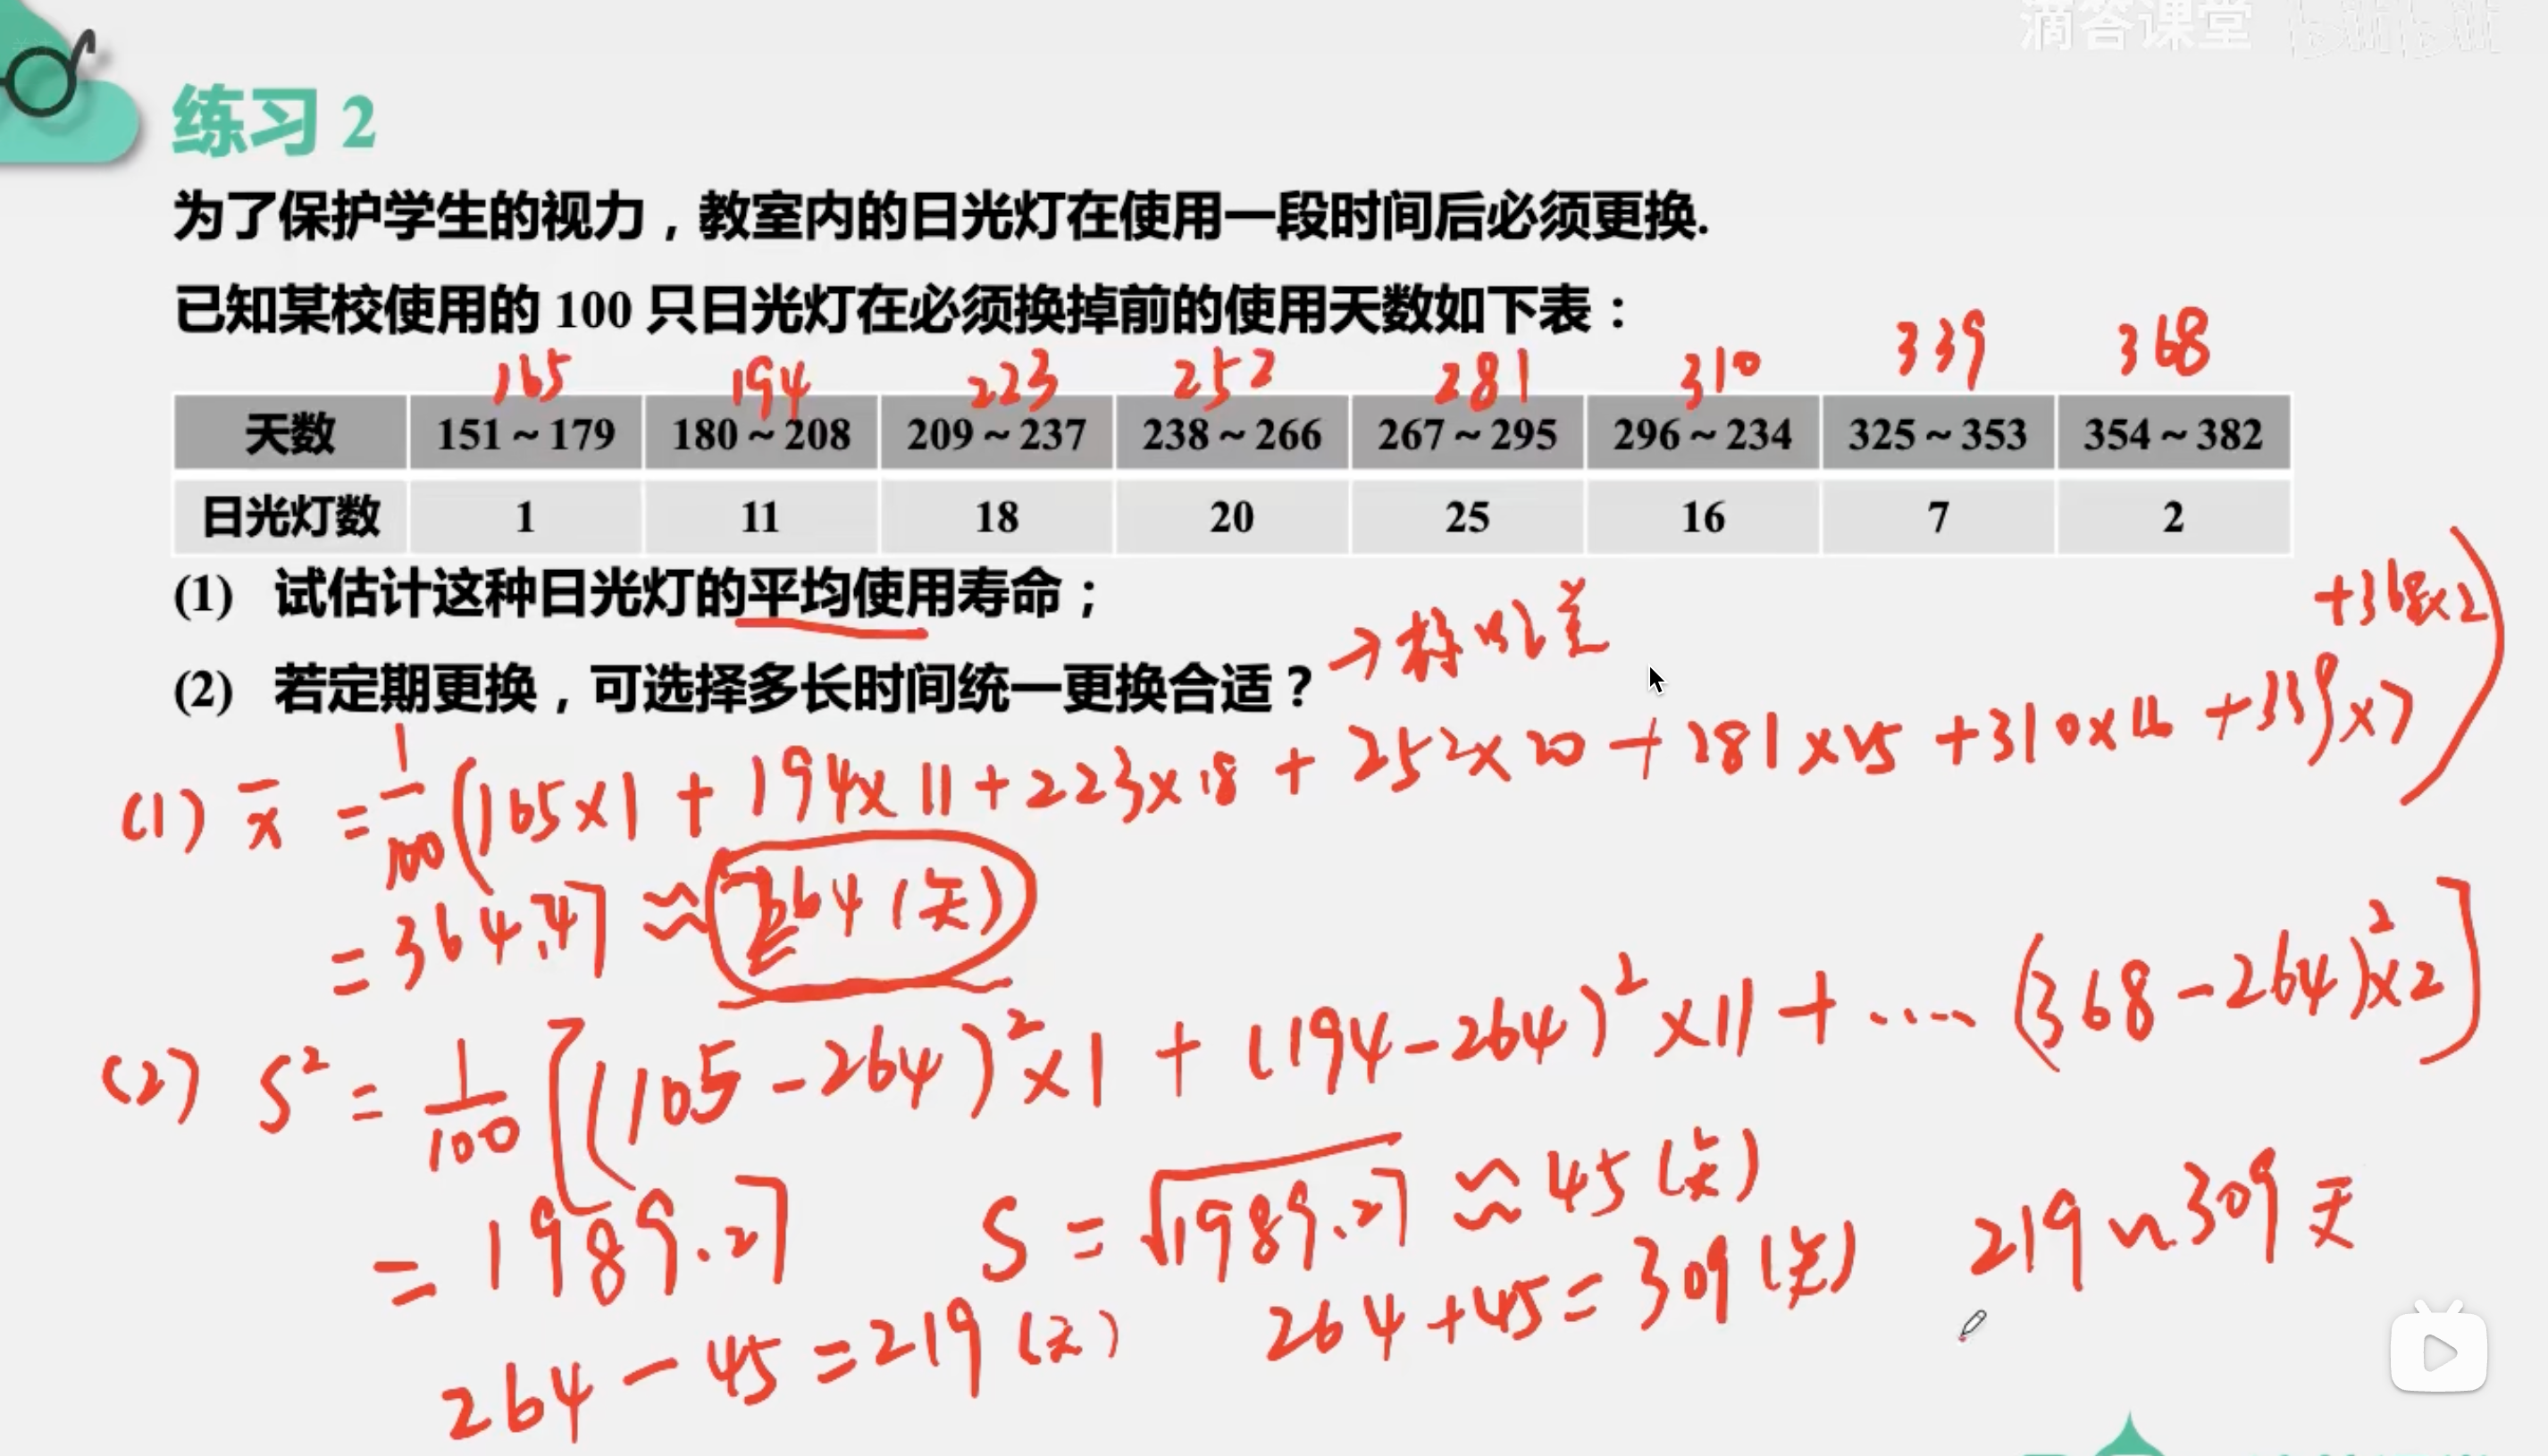 滴答课堂 bilibili
练习 2
为了保护学生的视力，教室内的日光灯在使用一段时间后必须更换.
已知某校使用的 100 只日光灯在必须换掉前的使用天数如下表：
165 194 223 252 281 310 339 368
天数 151～179 180～208 209～237 238～266 267～295 296～234 325～353 354～382
日光灯数 1 11 18 20 25 16 7 2
(1) 试估计这种日光灯的平均使用寿命；
(2) 若定期更换，可选择多长时间统一更换合适？ → 标准差
(1) x̄ = 1/100 (165×1 + 194×11 + 223×18 + 252×20 + 281×25 + 310×16 + 339×7 + 368×2)
= 364.47 ≈ 264 (天)
(2) S² = 1/100 [(105-264)²×1 + (194-264)²×11 + .... (368-264)²×2]
= 1989.27 S = √1989.27 ≈ 45 (天)
264 - 45 = 219 (天) 264 + 45 = 309 (天) 219 ~ 309 天